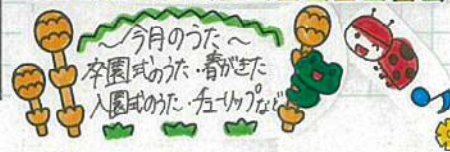 ～今月のうた～
卒園式のうた・春がきた
入園式のうた・チューリップなど